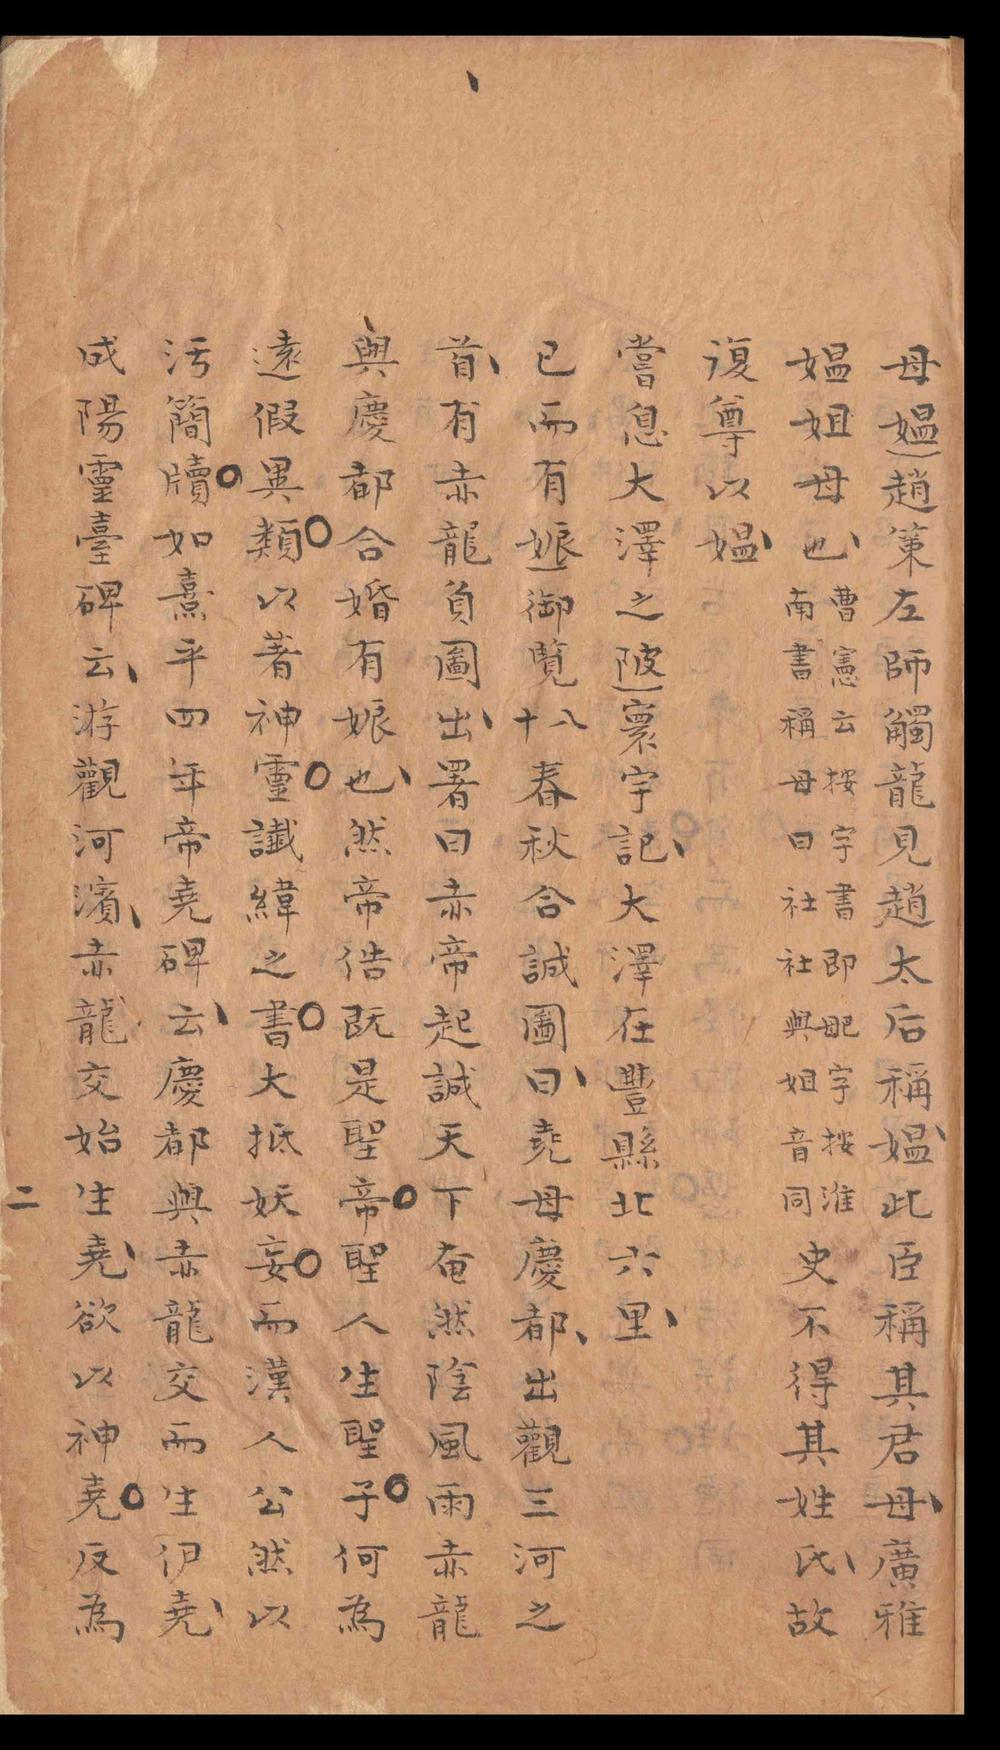 母媼趙策左師觸龍見趙太后稱媼此臣稱其君母廣雅
媼姐母也曹憲云按字書即肥字按淮南書稱母曰社社與姐音同史不得其姓氏故
復尊以媼
嘗息大澤之陂寰宇記大澤在豐縣北六里
已而有娠御覽十八春秋合誠圖曰堯母慶都出觀三河之
首有赤龍負圖出署曰赤帝起誠天下奄然陰風雨赤龍
與慶都合婚有娠也然帝俈既是聖帝聖人生聖子何為
遠假異類以著神靈讖緯之書大抵妖妄而漢人公然以
污簡牘如熹平四年帝堯碑云慶都與赤龍交而生伊堯
成陽靈臺碑云游觀河濱赤龍交始生堯欲以神堯反為
二